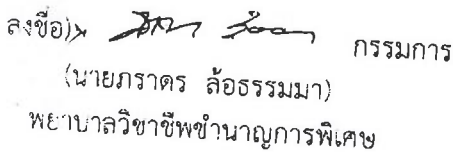 ลงชื่อ) กรรมการ
(นายภราดร ล้อธรรมมา)
พยาบาลวิชาชีพชำนาญการพิเศษ